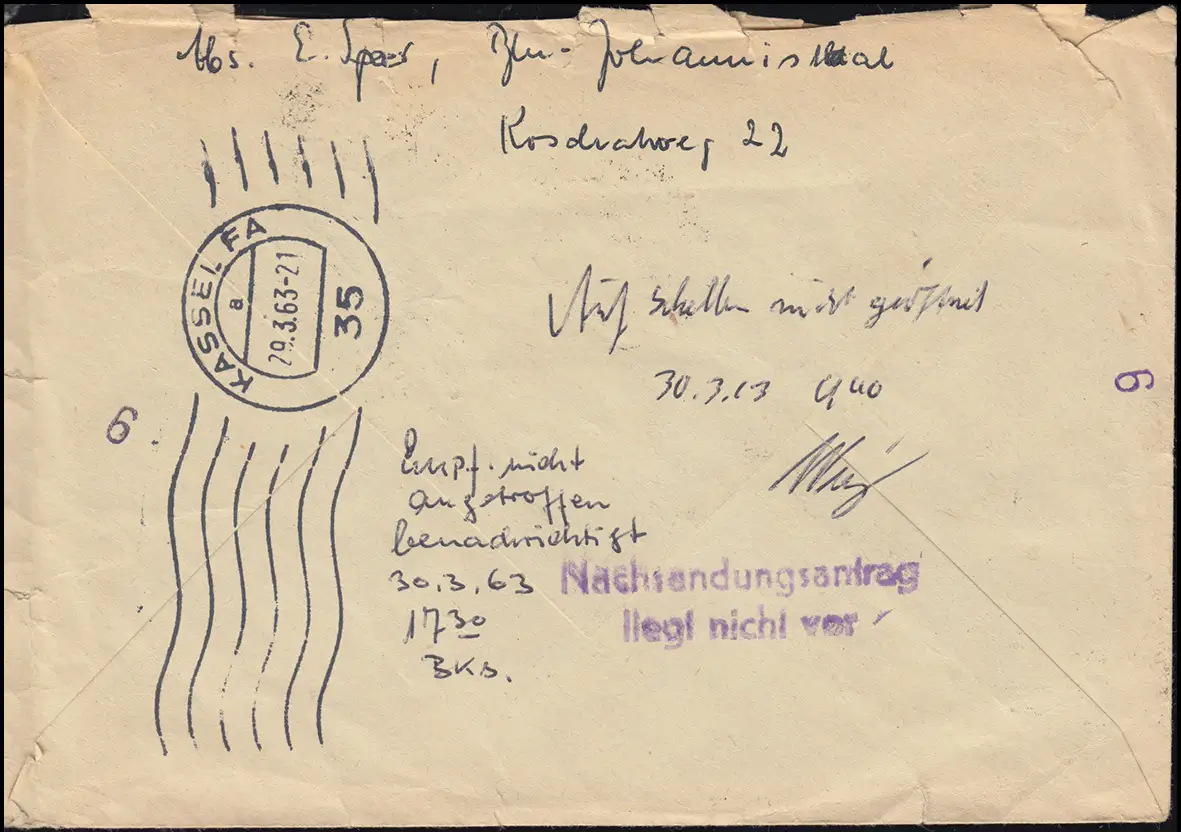 Abs. E. Speer, Bln-Johannisthal
Koschatweg 22
KASSEL FA
a
29.3.63-21
35
Auf Schellen nicht geöffnet
30.3.63 9 40
6.
6
Empf. nicht
angetroffen
benachrichtigt
30.3.63
17 30
BKs.
Nachsendungsantrag
liegt nicht vor